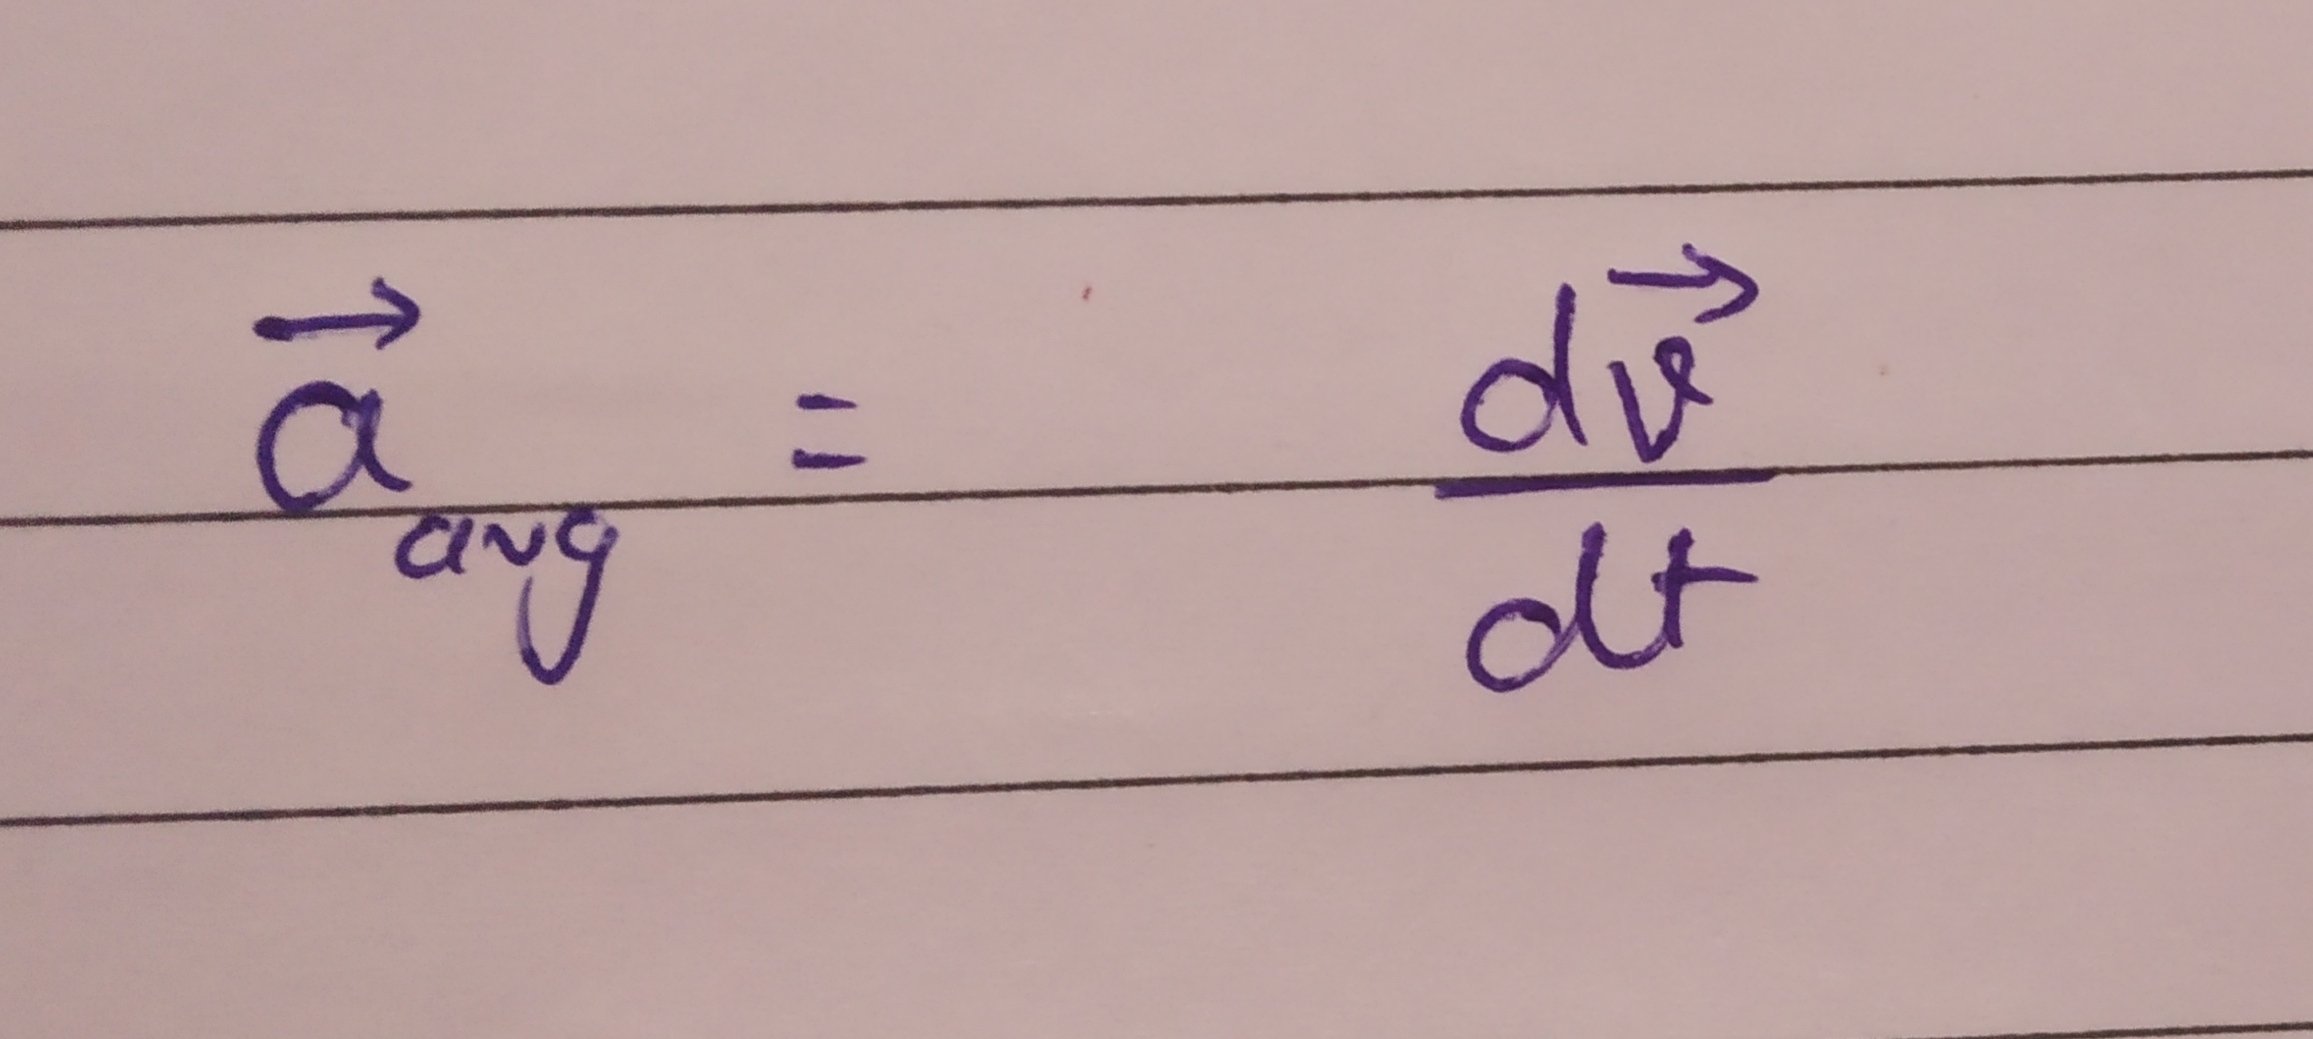 $\vec{a}_{avg} = \frac{d\vec{v}}{dt}$